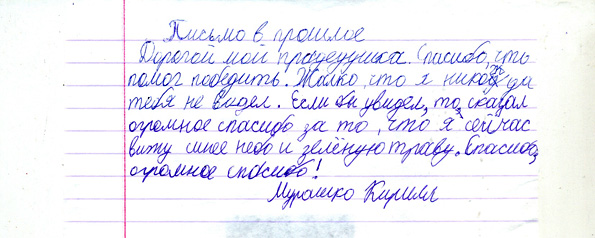 Письмо в прошлое
Дорогой мой прадедушка. Спасибо, что
помог победить. Жалко, что я никогда
тебя не видел. Если бы увидел, то, сказал
огромное спасибо за то, что я сейчас
вижу синее небо и зелёную траву. Спасибо,
огромное спасибо!
Мурашко Кирилл